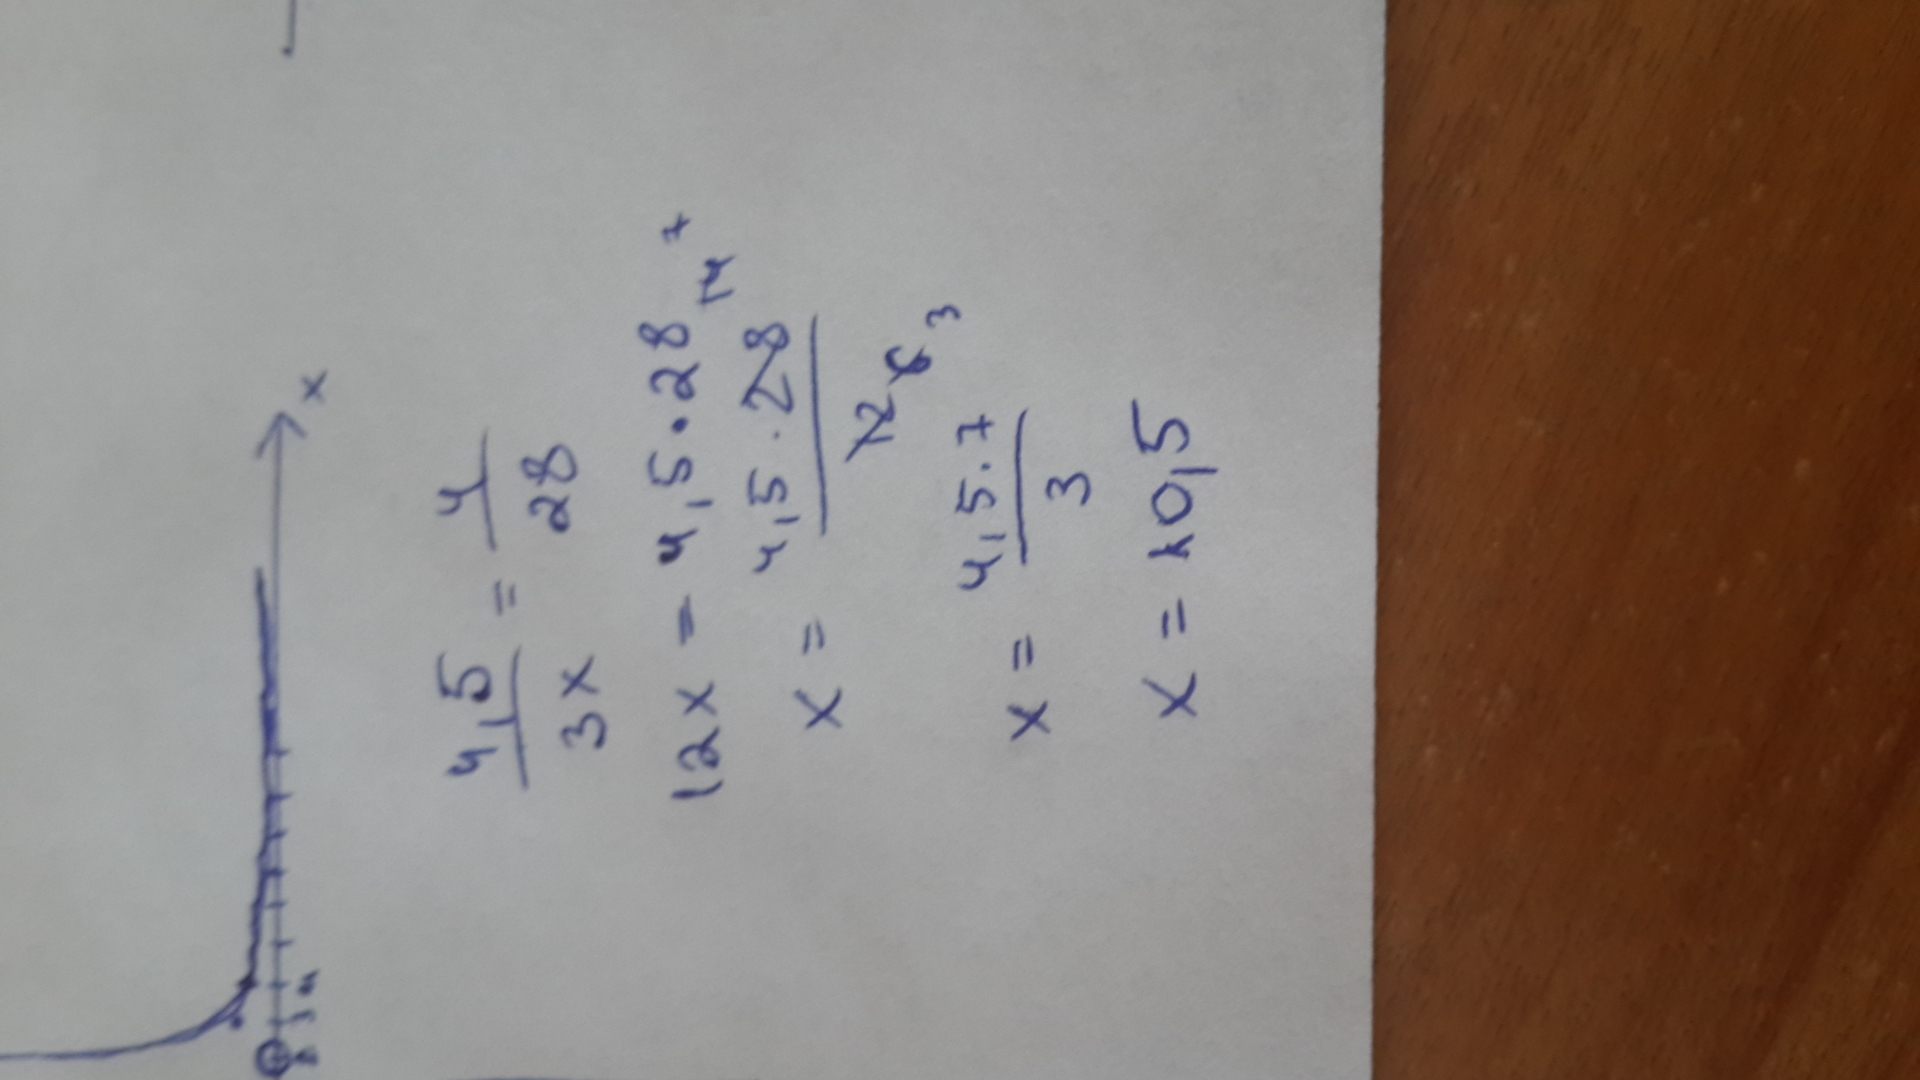 x
4,5/3x = 4/28
12x = 4,5 · 28
x = 4,5 · 28/12 14 7 6 3
x = 4,5 · 7/3
x = 10,5